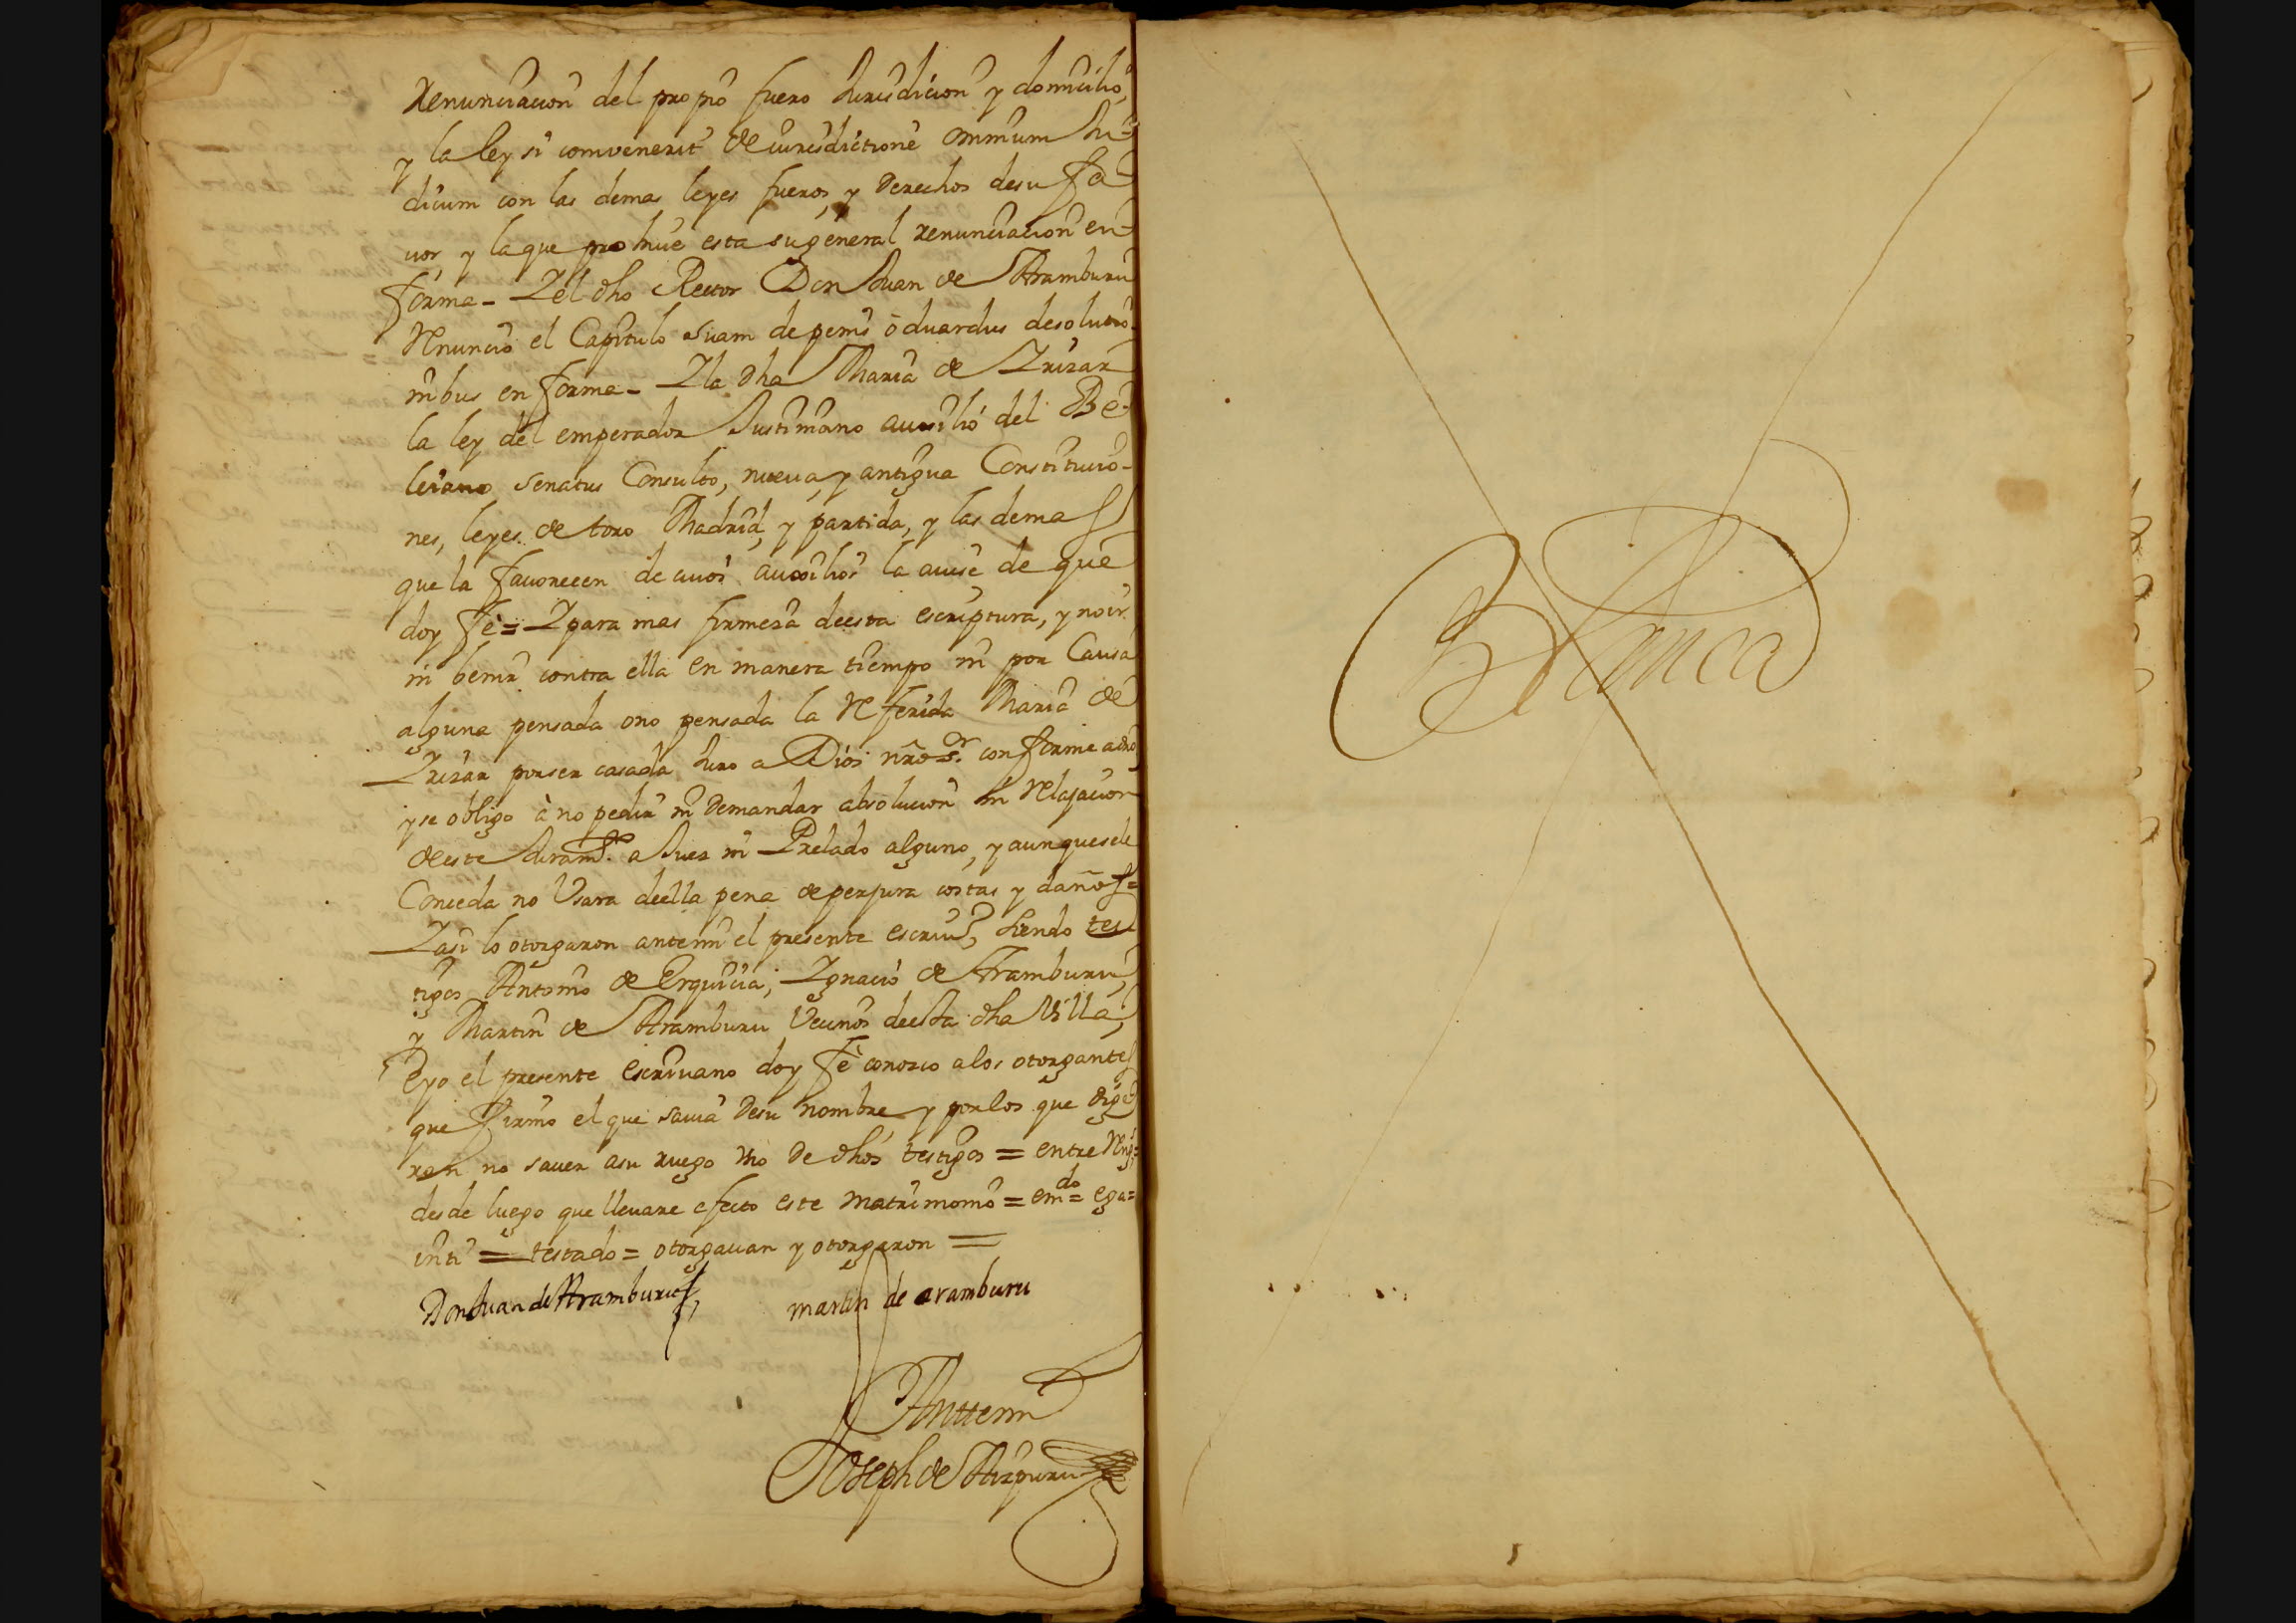 Renunciacion del propio fuero Jurisdicion y domicilio,
y la ley si combenerit de iurisdictione omnium Ju-
dicum con las demas leyes fueros, y derechos de su fa
uor, y la que prohiue esta su general renunciacion en
forma - Y el dho Rector Don Juan de Aramburu
Renuncio el Capitulo suam de penis oduardus desolutio-
nibus en forma - Y la dha Maria de Yrizar
la ley del emperador Justiniano auxilio del Be-
leiano senatus Consulto, nueua, y antigua Constitucio-
nes, leyes de toro Madrid, y partida, y las demas
que la fauorecen de cuios auxilios la auise de que
doy fè = Y para mas firmeza de esta escriptura, y no ir
ni benir contra ella en manera tiempo ni por Causa
alguna pensada o no pensada la Referida Maria de
Yrizar por ser casada Juro a Dios nro sr. conforme a dro
y se obligo à no pedir ni demandar absolucion ni Relajacion
de este Juramto. a Juez ni Prelado alguno, y aunque se le
Conceda no Usara de ella pena de perjura costas y daños =
Y asi lo otorgaron ante mi el presente escriuo, siendo tes
tigos Antonio de Erquicia, Ygnacio de Aramburu,
y Martin de Aramburu Vecinos de esta dha Villa;
E yo el presente escriuano doy fè conozco a los otorgantes
que firmo el que sauia de su nombre, y por los que dige
ron no sauer a su ruego vno de dhos testigos = entre Rengs =
desde luego que lleuare efecto este matrimonio = emdo = ega =
inti = testado = otorgauan y otorgaron =
Don Juan de Aramburu
martin de aramburu
Ante mi
Joseph de Aizpuru
Blanca